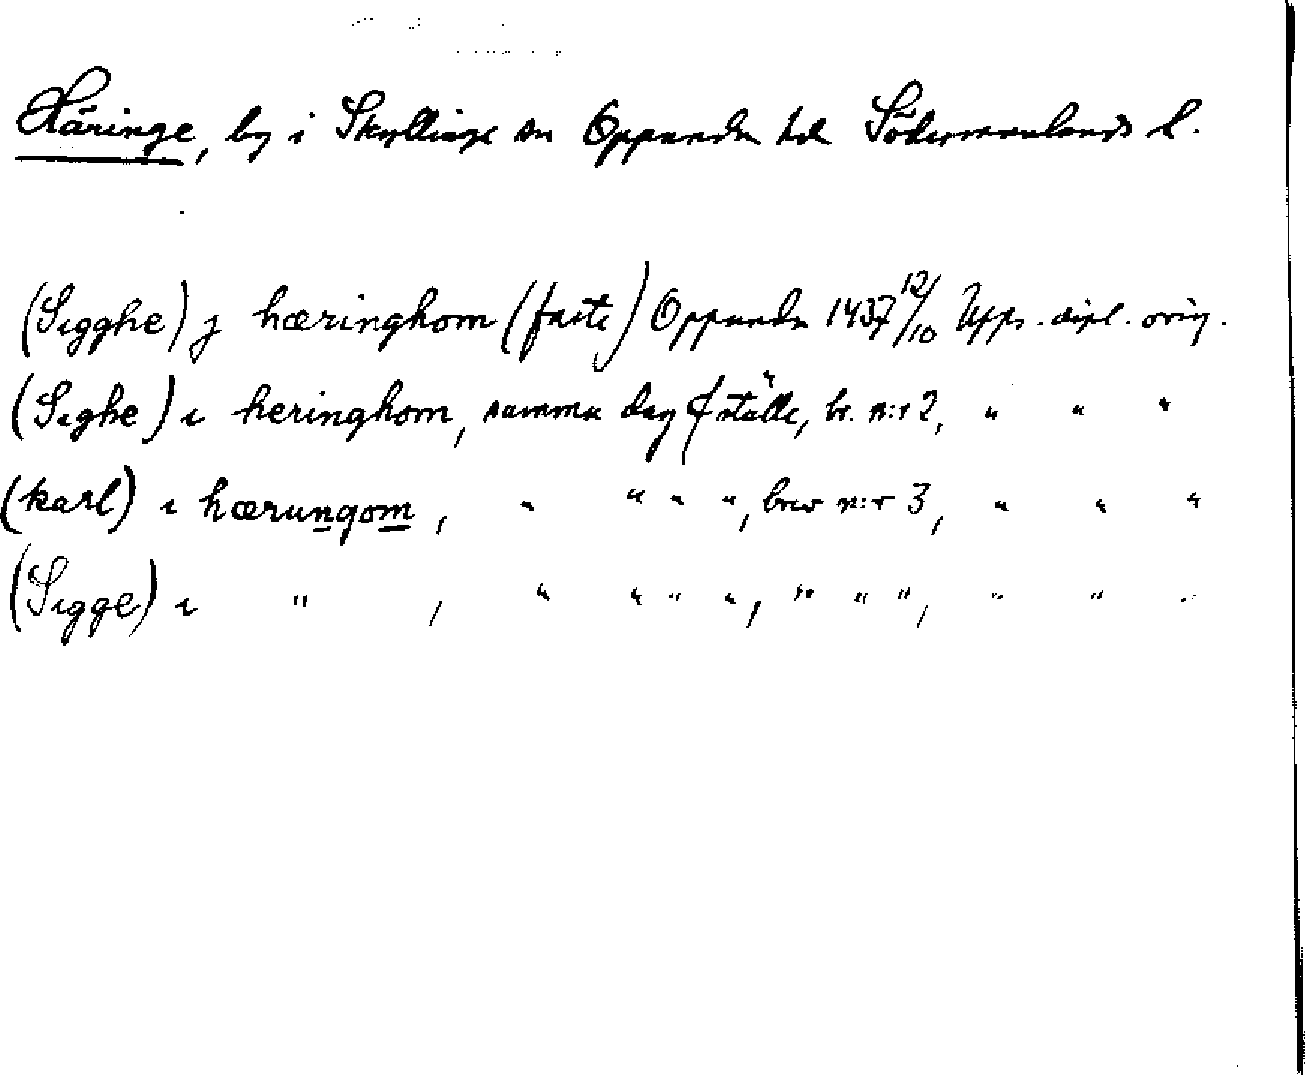 Häringe, by i Skyllinge sn Oppunda hd Södermanlands l.
(Sigghe) j hæringhom (faste) Oppunda 1437 12/10 Upps. dipl. orig.
(Sighe) ı heringhom, samma dag & ställe, br. n:r 2, " " "
(karl) ı hærungom, " " " ", brev n:r 3, " " "
(Sigge) ı " , " " " ", " " ", " " "